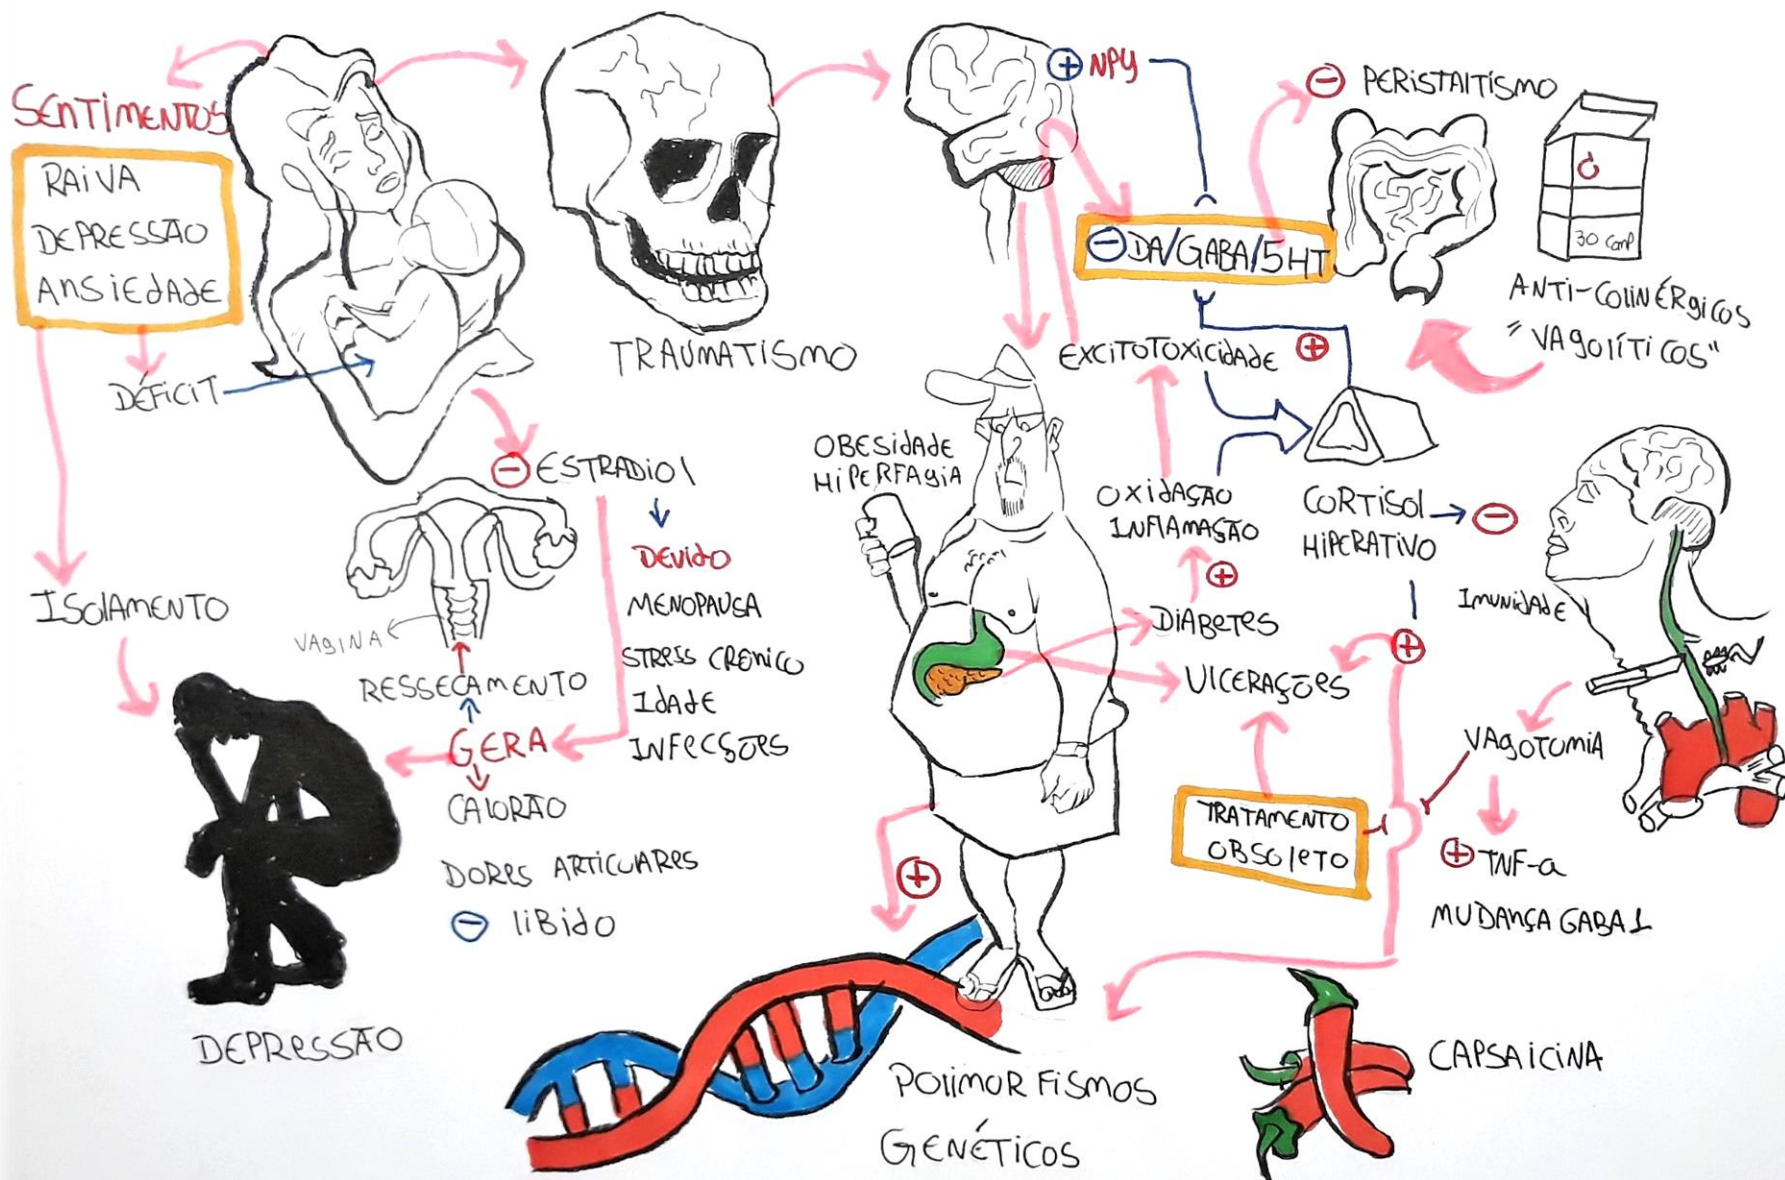 SENTIMENTOS
RAIVA
DEPRESSÃO
ANSIEDADE
DÉFICIT
ISOLAMENTO
DEPRESSÃO
TRAUMATISMO
⊖ ESTRADIOL
DEVIDO
MENOPAUSA
STRESS CRONICO
IDADE
INFECSÇÕES
VAGINA
RESSECAMENTO
GERA
CALORÃO
DORES ARTICULARES
⊖ LIBIDO
⊕ NPY
⊖ DA/GABA/5HT
⊖ PERISTALTISMO
30 COMP
ANTI-COLINÉRGICOS
"VAGOLÍTICOS"
EXCITOTOXICIDADE ⊕
OBESIDADE
HIPERFAGIA
OXIDAÇÃO
INFLAMAÇÃO
⊕
DIABETES
ULCERAÇÕES
CORTISOL
HIPERATIVO
⊖
IMUNIDADE
⊕
VAGOTOMIA
TRATAMENTO
OBSOLETO
⊕ TNF-α
MUDANÇA GABA 1
⊕
POLIMORFISMOS
GENÉTICOS
CAPSAICINA